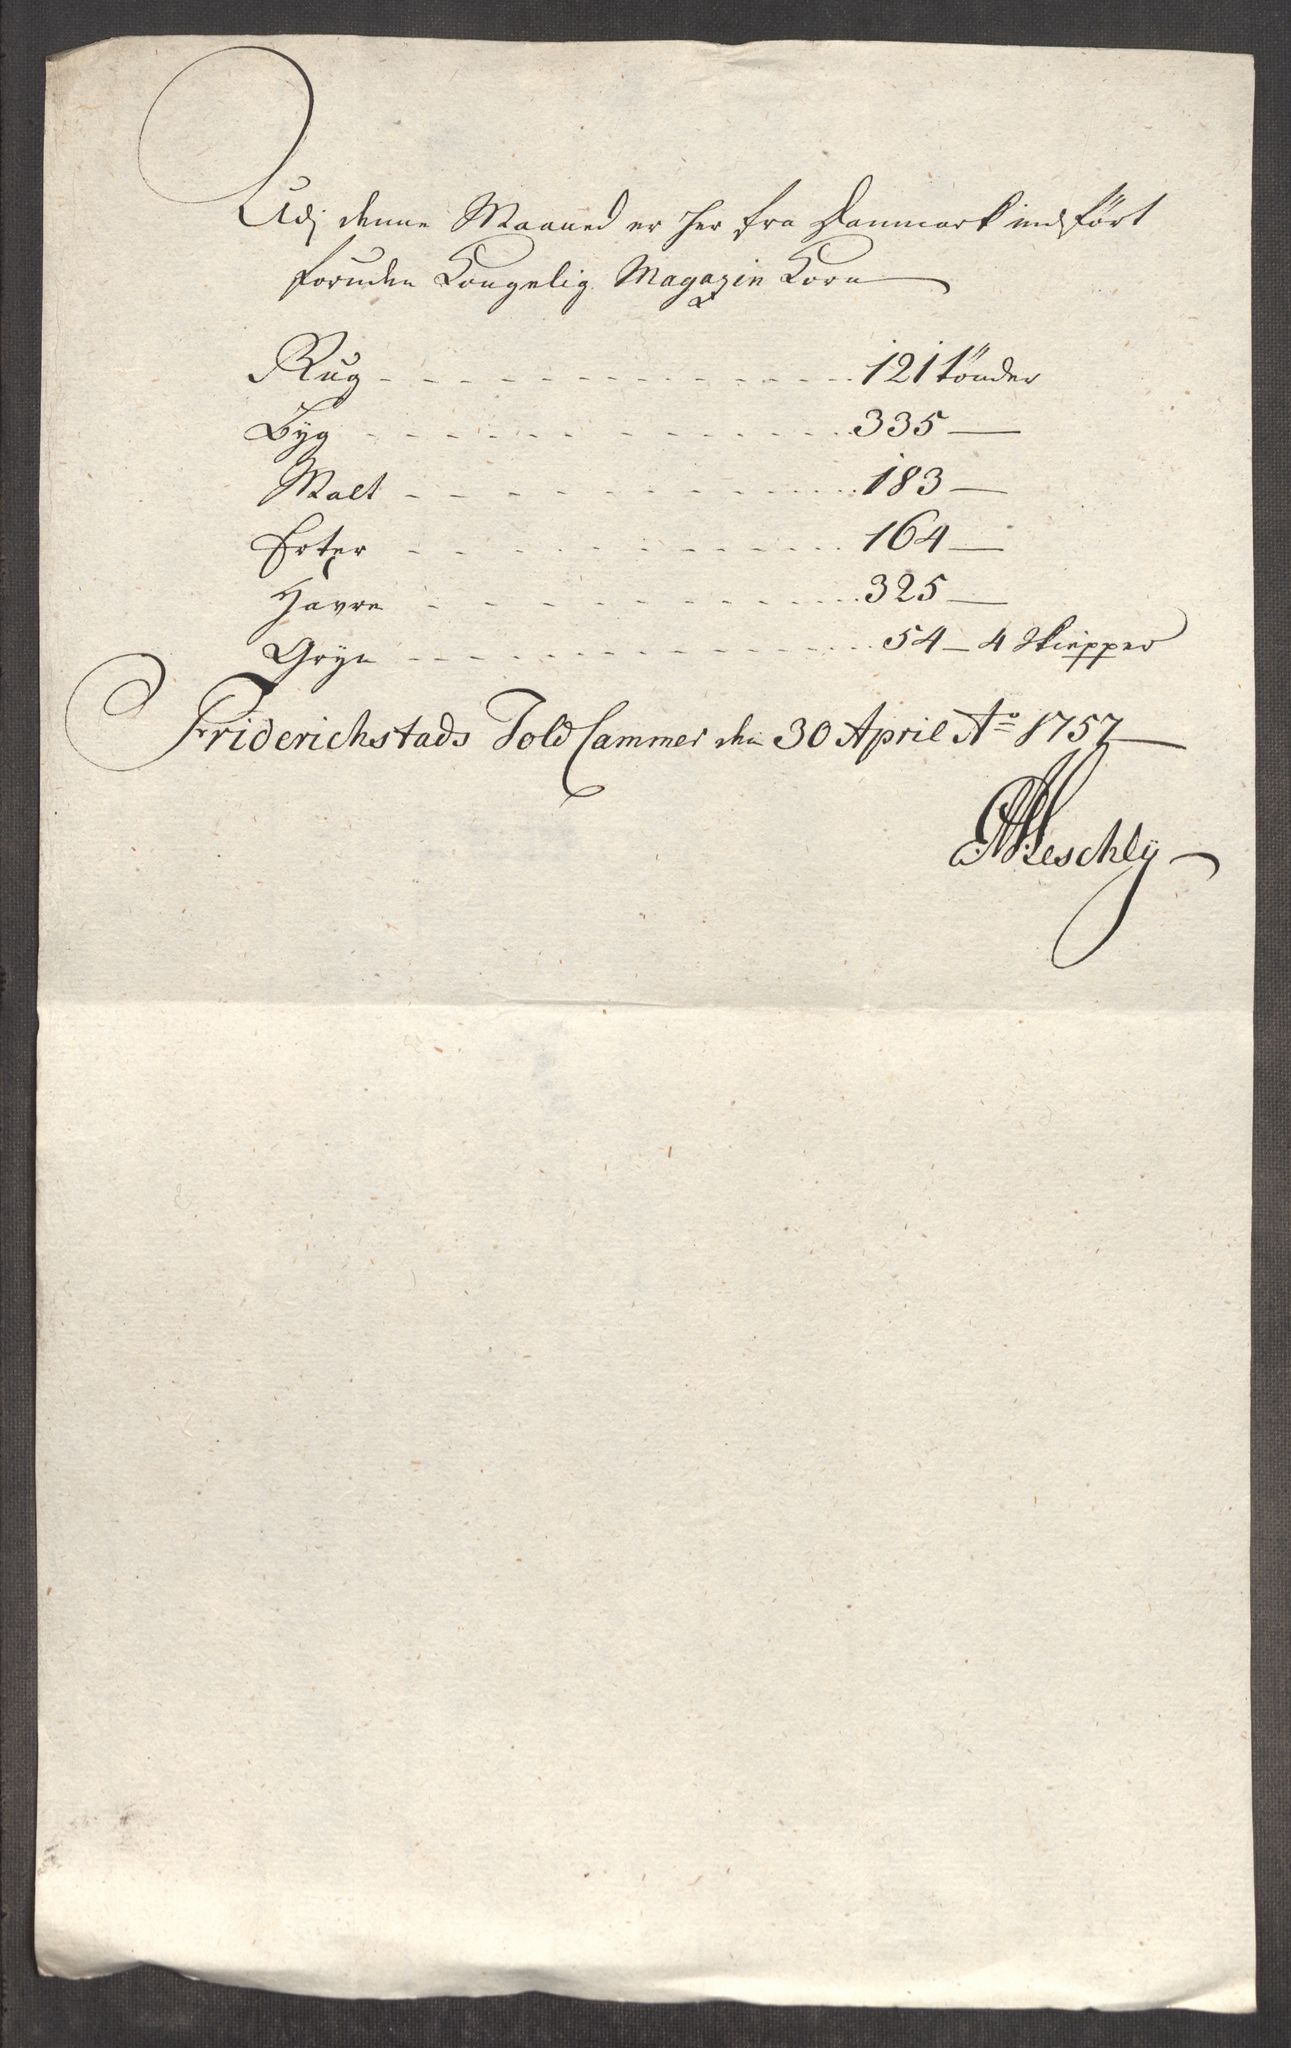 Udj denne Maaned er her fra Danmark indført
foruden Kongelig Magazin Korn
Rug - - - 121 tönder
Byg - - - 335 —
Malt - - - 183 —
Erter - - - 164 —
Havre - - - 325 —
Gryn - - - 54 — 4 Skiepper
Friderichstads Told Cammer den 30 April Ao 1757